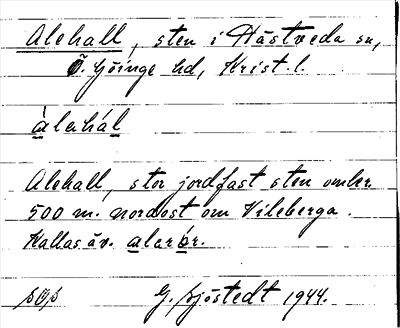 Alehall, sten i Hästveda sn,
Ö. Göinge hd, Krist. l.
àlahál
Alehall, stor jordfast sten omkr.
500 m. nordost om Vileberga.
Kallas äv.
G. Sjöstedt 1944.